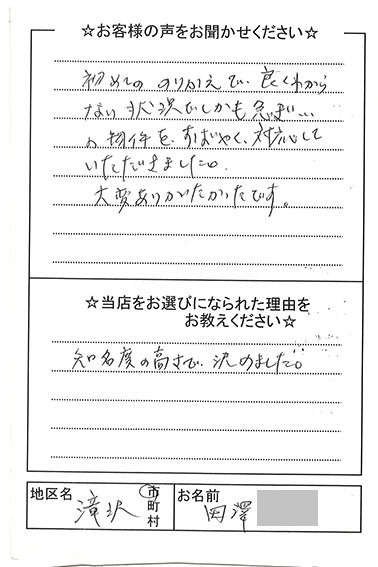 ☆お客様の声をお聞かせください☆
初めての のりかえで、良くわから
ない状況でしかも急ぎ…
の物件を、すばやく、対応して
いただきました。
大変ありがたかったです。
☆当店をお選びになられた理由を
お教えください☆
知名度の高さで、決めました。
地区名 滝沢 市町村
お名前 田澤